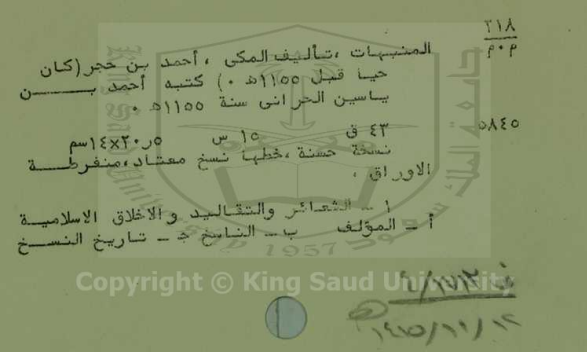 ٢١٨
م٠م
المنبهات ،تأليف المكى ، أحمد بن حجر (كان
حيا قبل ١١٥٥ه ٠) كتبه أحمد بــــن
ياسين الحرانى سنة ١١٥٥ه ٠
٥٨٤٥
٤٣ ق ١٥ س ٢٠٫٥×١٤سم
نسخة حسنة ،خطها نسخ معتاد،منفرطـــة
الاوراق ٠
١ـ الشعائر والتقاليد والاخلاق الاسلاميـة
أ ـ المؤلف ب ـ الناسخ جـ ـ تاريخ النسـخ
1957
Copyright © King Saud University
١٤١٥/١١/١٢